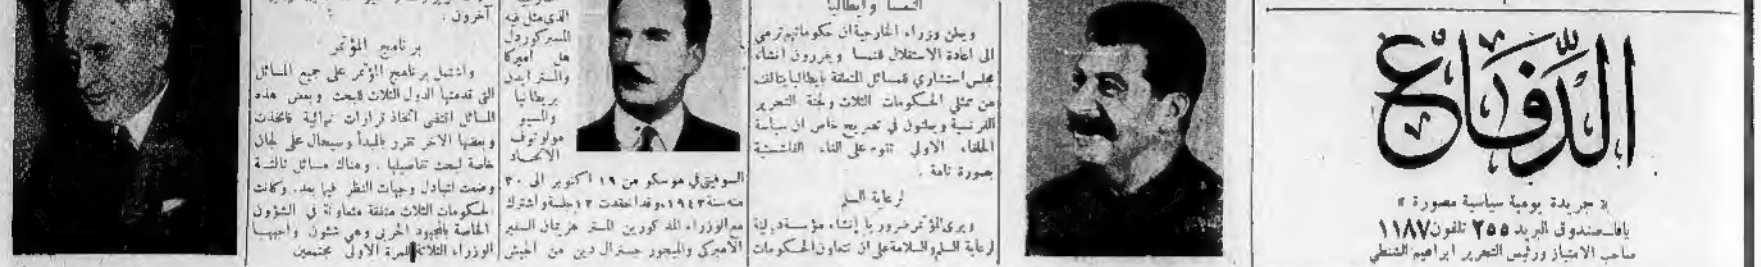 الدفاع
« جريدة يومية سياسية مصورة »
يافا - صندوق البريد ٢٥٥ تلفون ١١٨٧
صاحب الامتياز ورئيس التحرير ابراهيم الشنطي
النمسا وايطاليا
ويعلن وزراء الخارجية ان حكوماتهم ترمي
الى اعادة الاستقلال للنمسا ويقررون انشاء
مجلس استشاري للمسائل المتعلقة بايطاليا يتألف
من ممثلي الحكومات الثلاث ولجنة التحرير
الفرنسية ويعلنون في تصريح خاص ان سياسة
الحلفاء الاولى تقوم على الغاء الفاشستية
بصورة تامة .
لرعاية السلم
ويرى المؤتمر ضروريا إنشاء مؤسسة دولية
لرعاية السلم والسلامة على ان تتعاون الحكومات
الذي مثل فيه
المستر كوردل
هل اميركا
والمستر ايدن
بريطانيا
والمسيو
مولوتوف
الاتحاد
السوفيتي في موسكو من ١٩ اكتوبر الى ٣٠
منه سنة ١٩٤٣، وقد انعقدت ١٢ جلسة واشترك
مع الوزراء المذكورين المستر هريمان السفير
الاميركي والميجور جنرال دين من الجيش
آخرون .
برنامج المؤتمر
واشتمل برنامج المؤتمر على جميع المسائل
التي قدمتها الدول الثلاث للبحث وبعض هذه
المسائل اقتضى اتخاذ قرارات نهائية فاتخذت
وبعضها الاخر تقرر بالمبدأ وسيحال على لجان
خاصة لبحث تفاصيلها . وهناك مسائل ثالثة
وضعت لتبادل وجهات النظر فيما بعد. وكانت
الحكومات الثلاث متفقة متعاونة في الشؤون
الخاصة بالمجهود الحربي وهي شئون واجهها
الوزراء الثلاثة للمرة الاولى مجتمعين